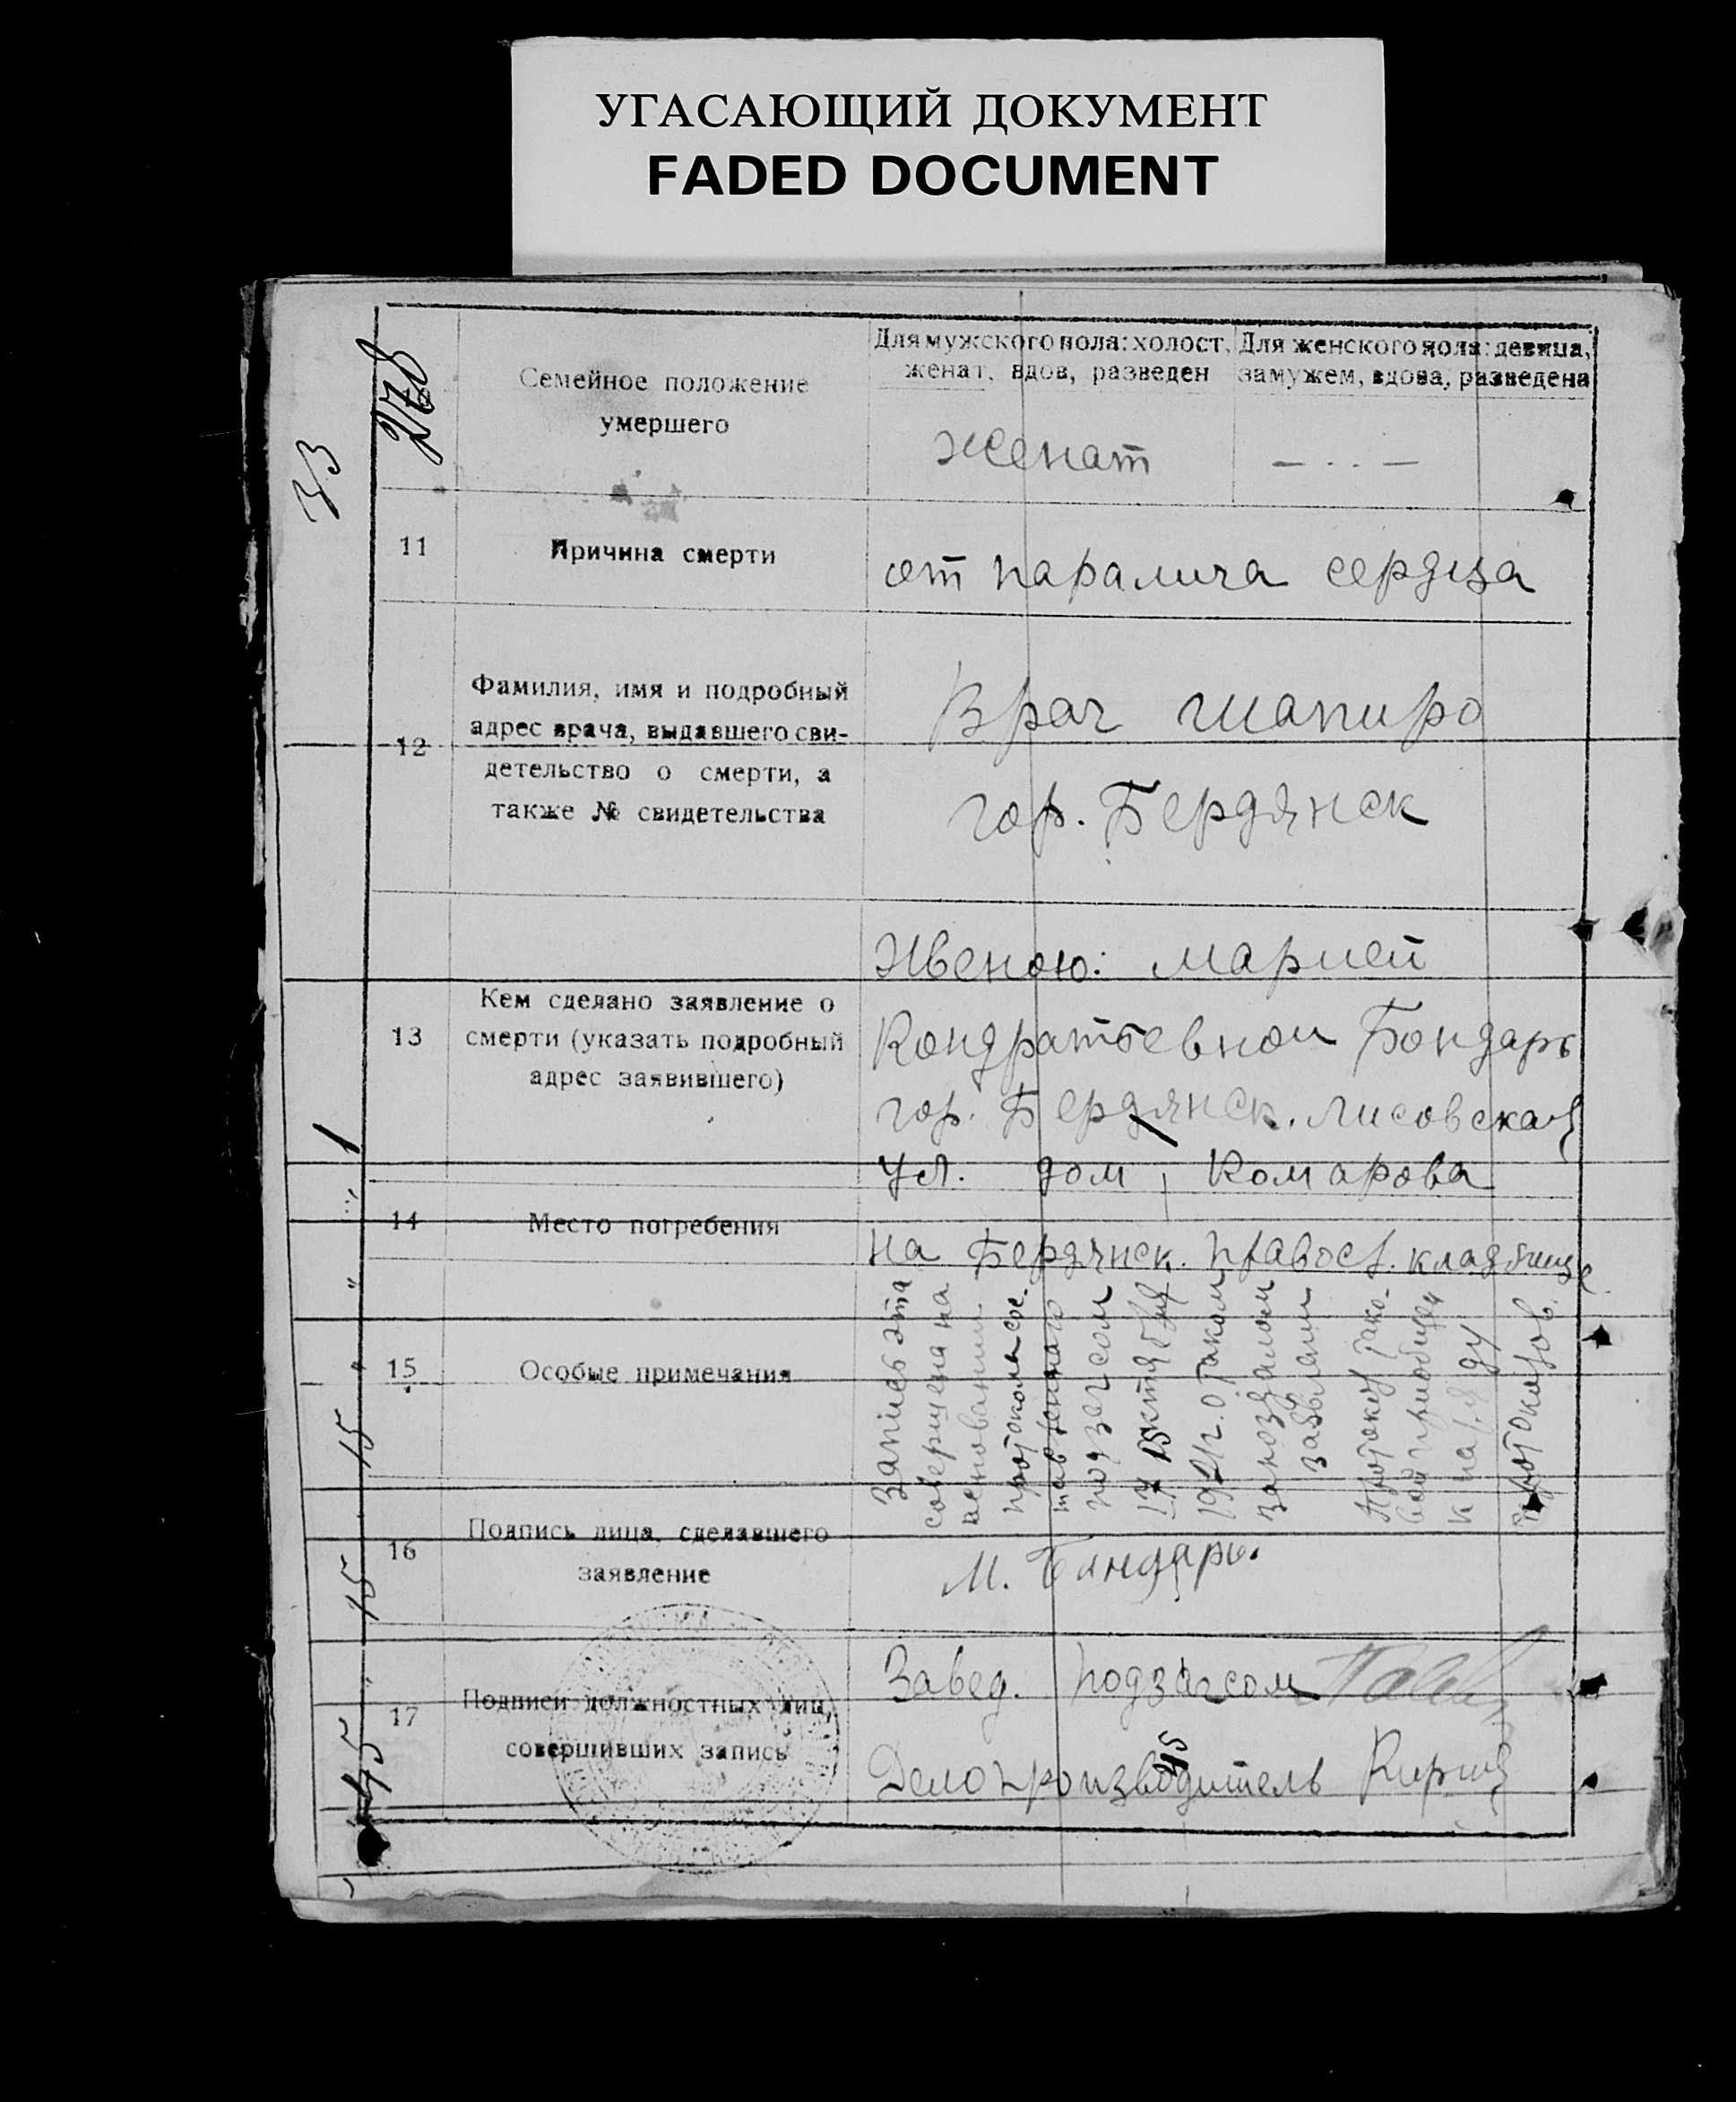 УГАСАЮЩИЙ ДОКУМЕНТ
FADED DOCUMENT
278
33
Семейное положение
умершего
Для мужского пола: холост,
женат, вдов, разведен
Для женского пола: девица,
замужем, вдова, разведена
женат
— · · —
11
Причина смерти
от паралича сердца
12
Фамилия, имя и подробный
адрес врача, выдавшего сви-
детельство о смерти, а
также № свидетельства
Врач шапиро
гор. Бердянск
13
Кем сделано заявление о
смерти (указать подробный
адрес заявившего)
Женою: марией
Кондратьевной Бондарь
гор. Бердянск. лисовская
ул. дом Комарова
14
Место погребения
на Бердянск. правосл. кладбище
15
Особые примечания
Запись эта
совершена на
основании
протокола сос-
тавленного
подзагсом
17 октября
192 г. о таком
запоздалом
заявлении
Протокол тако-
вой приобщен
к наряду
протоколов.
16
Подпись лица, сделавшего
заявление
М. Бондарь.
17
Подписи должностных лиц,
совершивших запись
Завед. подзагсом
Делопроизводитель
1
15
15
45
45